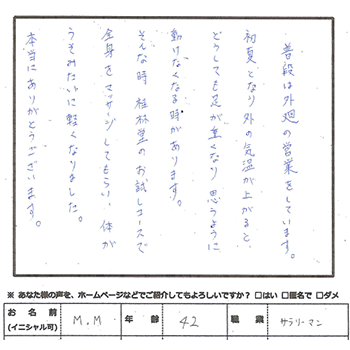 普段は外廻の営業をしています。
初夏となり外の気温が上がると、
どうしても足が重くなり思うように
動けなくなる時があります。
そんな時桂林堂のお試しコースで
全身をマッサージしてもらい、体が
うそみたいに軽くなりました。
本当にありがとうございます。
※ あなた様の声を、ホームページなどでご紹介してもよろしいですか? □はい □匿名で □ダメ
お名前 (イニシャル可) M.M 年齢 42 職業 サラリーマン